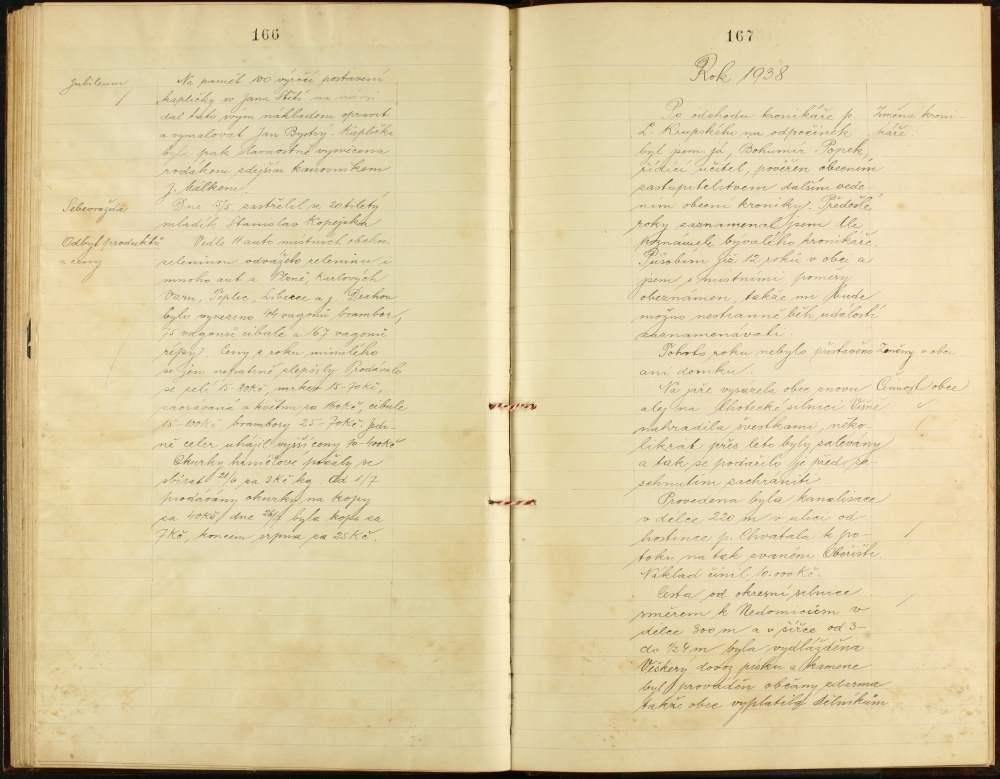 166
Jubileum
Na paměť 100 výročí postavení
kapličky sv Jana Stětí na návsi
dal tuto svým nákladem opravit
a vymalovat Jan Bystrý. Kaplička
byla pak slavnostně vysvěcena
rodákem zdejším kanovníkem
J. Hálkem.
Sebevražda
Dne 15/5. zastřelil se 20tiletý
mladík Stanislav Kopejska
Odbyt produktů
a ceny
Vedle 11 auto místních obchod.
zeleninou odváželo zeleninu i
mnoho aut z Plzně, Karlových
Varů, Teplic, Liberce a j. Drahou
bylo vyvezeno 44 vagonů brambor,
75 vagonů cibule a 167 vagonů
řepy. Ceny z roku minulého
se jen nepatrně zlepšily Prodávalo
se zelí 15-80Kč, mrkev 15-70Kč,
v květnu za 160Kč, cibule
15-100Kč brambory 25-70Kč. Jedi-
ně celer uhájil vyšší ceny 70-400Kč
Okurky hrnčířové počaly se
sbírat 21/6 za 3Kč kg. Od 1/7
prodávány okurky na kopy
za 40Kč, dne 26/7 byla kopa za
7Kč, koncem srpna za 25Kč.
167
Rok 1938
Po odchodu kronikáře p.
L. Krupského na odpočinek
byl jsem já, Bohumír Popek,
řídící učitel, pověřen obecním
zastupitelstvem dalším vede-
ním obecní kroniky. Předešlé
roky zaznamenal jsem dle
poznámek bývalého kronikáře.
Působím již 12 roků v obci a
jsem s místními poměry
obeznámen, takže mi bude
možno nestranně běh událostí
zaznamenávati.
Změna kroni-
káře
Tohoto roku nebylo přistavěno
ani domku.
Změny v obci
Na jaře vysázela obec znovu
alej na Lhotecké silnici Višně
nahradila švestkami, něko-
likrát přes léto byly zalévány
a tak se podařilo je před za-
schnutím zachrániti
Činnost obce
Provedena byla kanalisace
v délce 220 m v ulici od
hostince p. Chvatala k po-
toku na tak zvaném Obeřišti.
Náklad činil 10.000Kč.
Cesta od okresní silnice
směrem k Nedomicům v
délce 300 m a v šířce od 3-
do 1/2 4 m byla vydlážděna
Veškery dovoz písku a kamene
byl prováděn občany zdarma
takže obec vyplatila dělníkům